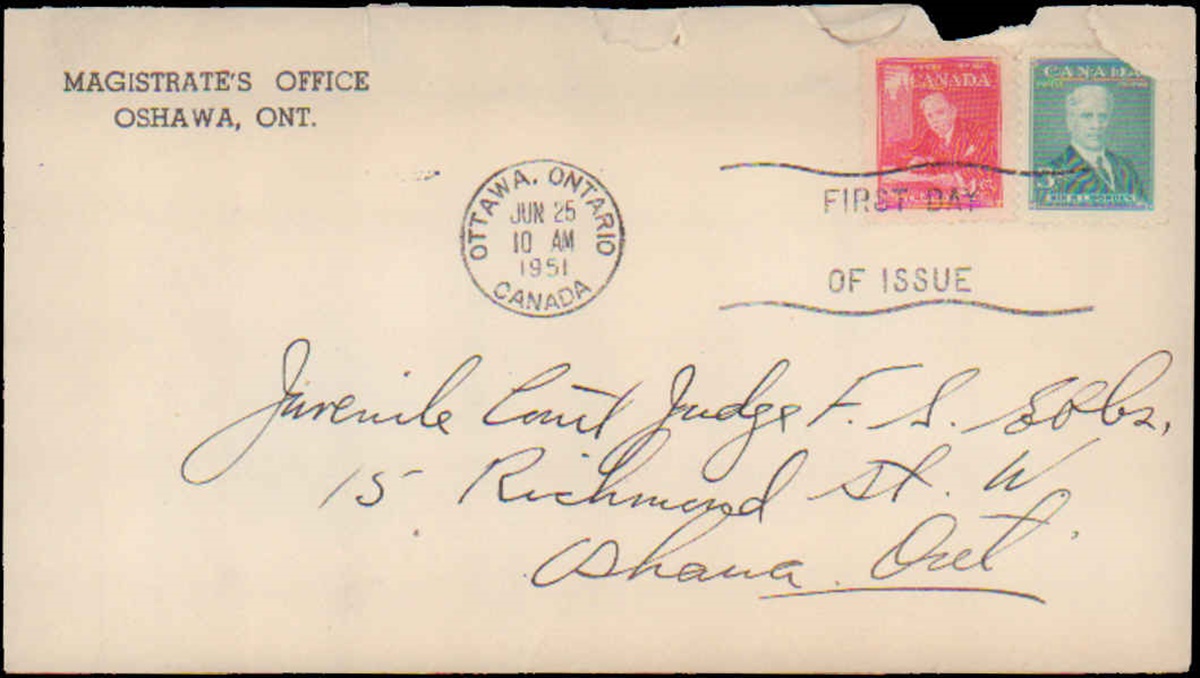 MAGISTRATE'S OFFICE
OSHAWA, ONT.
CANADA
CANADA
OTTAWA, ONTARIO
JUN 25
10 AM
1951
CANADA
FIRST DAY
OF ISSUE
Juvenile Court Judge F. S. Ebbs,
15 Richmond St. W
Oshawa. Ont